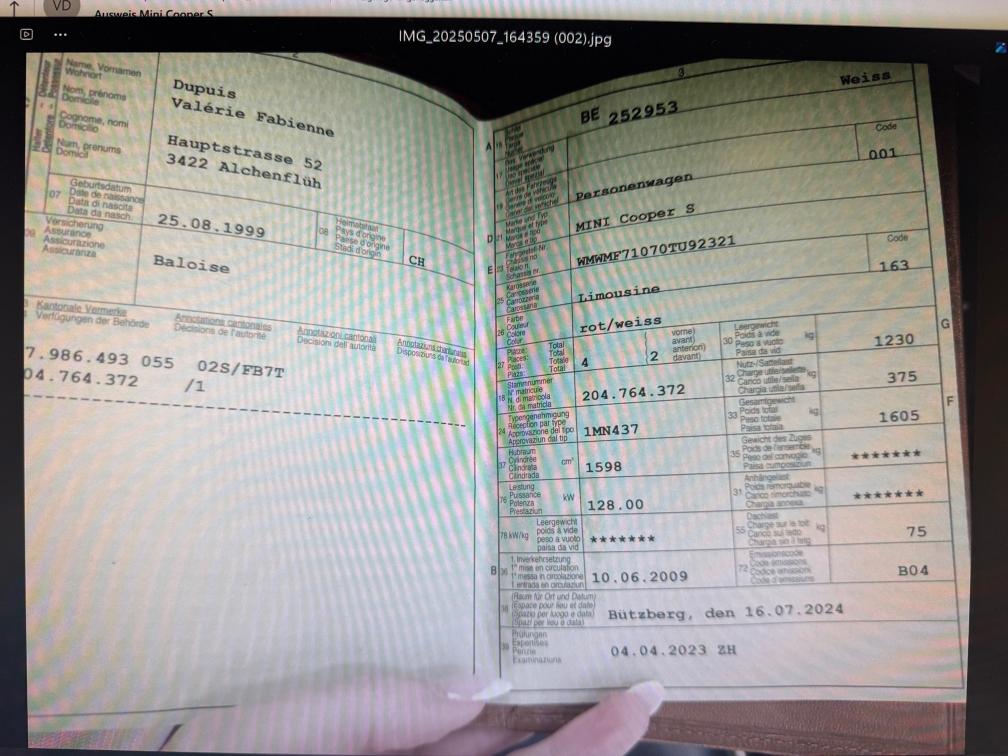 VD
Ausweis Mini Cooper S
IMG_20250507_164359 (002).jpg
2
Name, Vornamen
Wohnort
Nom, prénoms
Domicile
Cognome, nomi
Domicilio
Num, prenums
Domicil
Dupuis
Valérie Fabienne
Hauptstrasse 52
3422 Alchenflüh
07
Geburtsdatum
Date de naissance
Data di nascita
Data da nasch.
25.08.1999
08
Heimatstaat
Pays d'origine
Paese d'origine
Stadi d'origin
CH
09
Versicherung
Assurance
Assicurazione
Assicuranza
Baloise
Kantonale Vermerke
Verfügungen der Behörde
Annotations cantonales
Décisions de l'autorité
Annotazioni cantonali
Decisioni dell'autorità
Annotaziuns chantunalas
Disposiziuns da l'autoritad
7.986.493 055 02S/FB7T
04.764.372 /1
3
A
BE 252953
Weiss
17
Code
001
19
Personenwagen
D 21
Marke und Typ
Marque et type
Marca e tipo
MINI Cooper S
E 23
Fahrgestell-Nr.
Châssis no
Telaio n.
Schassis nr.
WMWMF71070TU92321
Code
163
25
Karosserie
Carrosserie
Carrozzeria
Carossaria
Limousine
26
Farbe
Couleur
Colore
Colur
rot/weiss
27
Plätze: Total
Places: Total
Posti: Totale
Plazs: Total
4
2
vorne)
avant)
anteriori)
davant)
30
Leergewicht
Poids à vide
Peso a vuoto
Paisa da vid
kg
1230
G
18
Stammnummer
N° matricule
N. di matricola
Nr. da matricla
204.764.372
32
Nutz-/Sattellast
Charge utile/sellette
Carico utile/sella
Chargia utila/sella
kg
375
24
Typengenehmigung
Réception par type
Approvazione del tipo
Approvaziun dal tip
1MN437
33
Gesamtgewicht
Poids total
Peso totale
Paisa totala
kg
1605
F
37
Hubraum
Cylindrée
Cilindrata
Cilindrada
cm³
1598
35
Gewicht des Zuges
Poids de l'ensemble
Peso del convoglio
Paisa cumposiziun
kg
*******
76
Leistung
Puissance
Potenza
Prestaziun
kW
128.00
31
Anhängelast
Poids remorquable
Carico rimorchiato
Chargia annexa
kg
*******
78 kW/kg
Leergewicht
poids à vide
peso a vuoto
paisa da vid
*******
55
Dachlast
Charge sur le toit
Carico sul tetto
Chargia sin il tetg
kg
75
B 36
1. Inverkehrsetzung
1re mise en circulation
1a messa in circolazione
1. entrada en circulaziun
10.06.2009
72
Emissionscode
Code émissions
Codice emissioni
Code d'emissiuns
B04
38
(Raum für Ort und Datum)
(Espace pour lieu et date)
(Spazio per luogo e data)
(Spazi per lieu e data)
Bützberg, den 16.07.2024
39
Prüfungen
Expertises
Perizie
Examinaziuns
04.04.2023 ZH